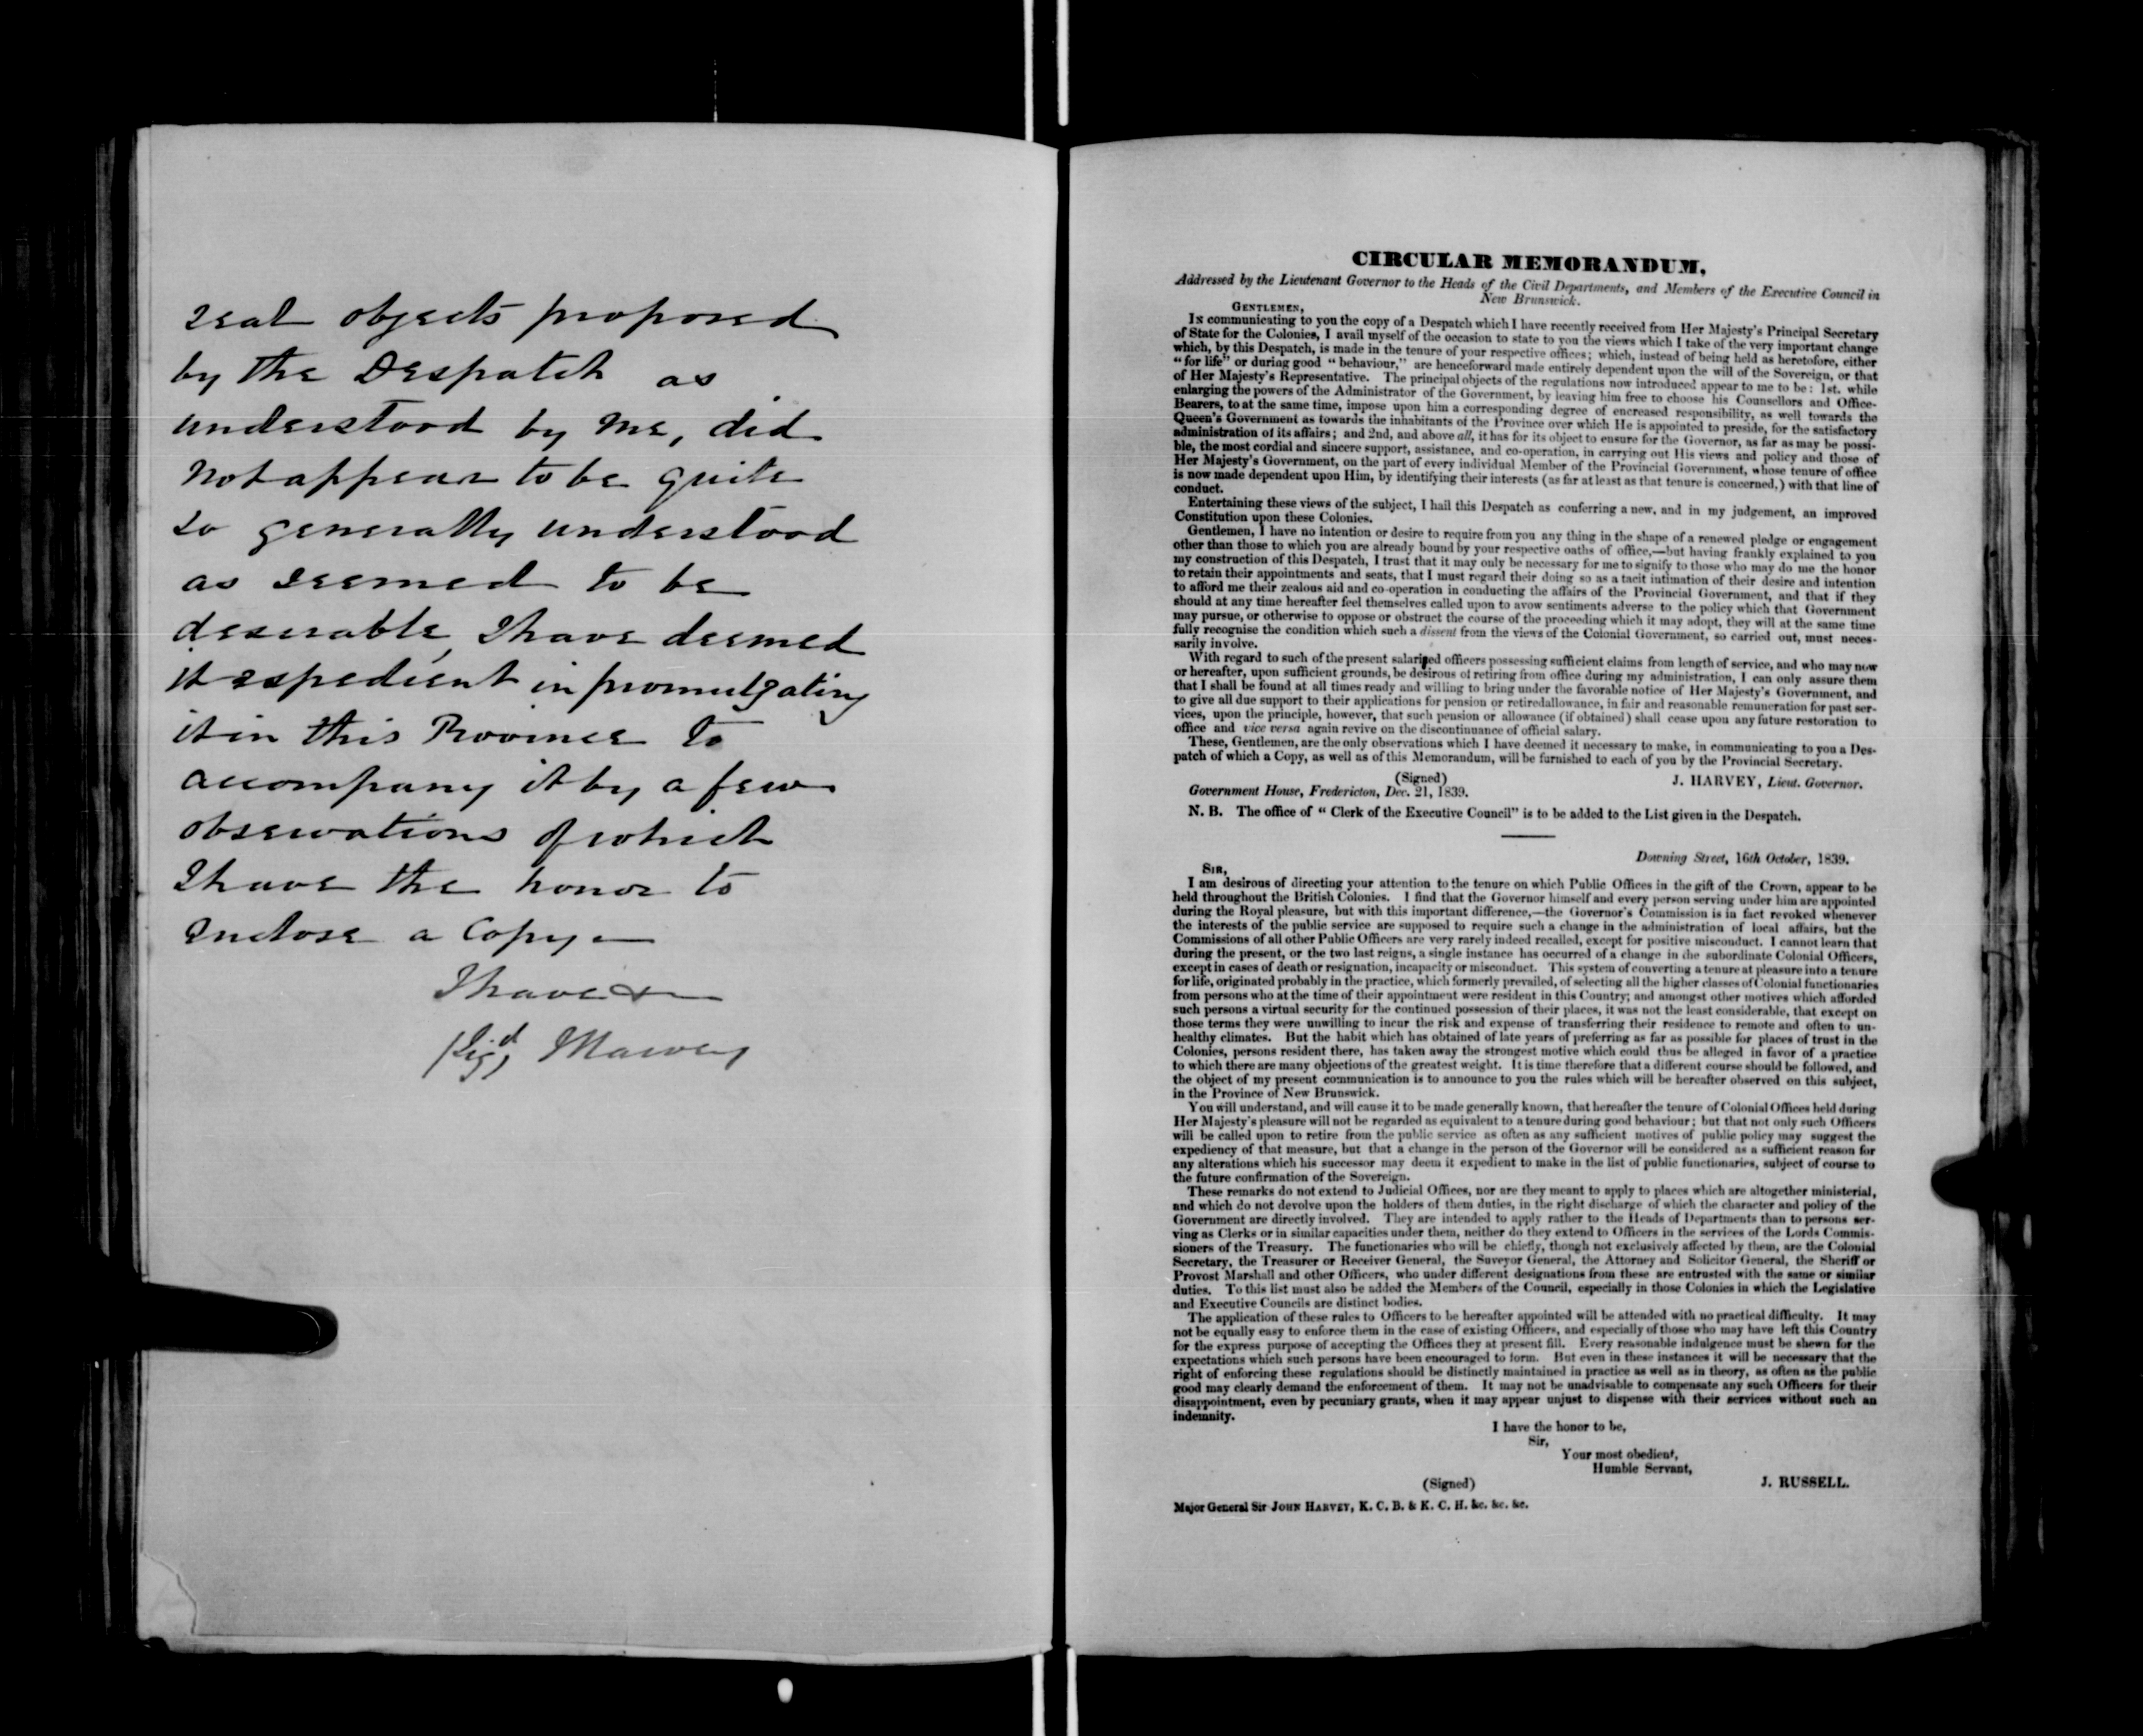 real objects proposed
by the Despatch as
understood by me, did
not appear to be quite
so generally understood
as seemed to be
desirable, I have deemed
it expedient in promulgating
it in this Province to
accompany it by a few
observations of which
I have the honor to
enclose a Copy—
I have &
(Sigd) J Harvey
CIRCULAR MEMORANDUM,
Addressed by the Lieutenant Governor to the Heads of the Civil Departments, and Members of the Executive Council in
New Brunswick.
GENTLEMEN,
IN communicating to you the copy of a Despatch which I have recently received from Her Majesty's Principal Secretary
of State for the Colonies, I avail myself of the occasion to state to you the views which I take of the very important change
which, by this Despatch, is made in the tenure of your respective offices; which, instead of being held as heretofore, either
"for life" or during good "behaviour," are henceforward made entirely dependent upon the will of the Sovereign, or that
of Her Majesty's Representative. The principal objects of the regulations now introduced appear to me to be: 1st. while
enlarging the powers of the Administrator of the Government, by leaving him free to choose his Counsellors and Office-
Bearers, to at the same time, impose upon him a corresponding degree of encreased responsibility, as well towards the
Queen's Government as towards the inhabitants of the Province over which He is appointed to preside, for the satisfactory
administration of its affairs; and 2nd, and above all, it has for its object to ensure for the Governor, as far as may be possi-
ble, the most cordial and sincere support, assistance, and co-operation, in carrying out His views and policy and those of
Her Majesty's Government, on the part of every individual Member of the Provincial Government, whose tenure of office
is now made dependent upon Him, by identifying their interests (as far at least as that tenure is concerned,) with that line of
conduct.
Entertaining these views of the subject, I hail this Despatch as conferring a new, and in my judgement, an improved
Constitution upon these Colonies.
Gentlemen, I have no intention or desire to require from you any thing in the shape of a renewed pledge or engagement
other than those to which you are already bound by your respective oaths of office,—but having frankly explained to you
my construction of this Despatch, I trust that it may only be necessary for me to signify to those who may do me the honor
to retain their appointments and seats, that I must regard their doing so as a tacit intimation of their desire and intention
to afford me their zealous aid and co-operation in conducting the affairs of the Provincial Government, and that if they
should at any time hereafter feel themselves called upon to avow sentiments adverse to the policy which that Government
may pursue, or otherwise to oppose or obstruct the course of the proceeding which it may adopt, they will at the same time
fully recognise the condition which such a dissent from the views of the Colonial Government, so carried out, must neces-
sarily involve.
With regard to such of the present salaried officers possessing sufficient claims from length of service, and who may now
or hereafter, upon sufficient grounds, be desirous of retiring from office during my administration, I can only assure them
that I shall be found at all times ready and willing to bring under the favorable notice of Her Majesty's Government, and
to give all due support to their applications for pension or retiredallowance, in fair and reasonable remuneration for past ser-
vices, upon the principle, however, that such pension or allowance (if obtained) shall cease upon any future restoration to
office and vice versa again revive on the discontinuance of official salary.
These, Gentlemen, are the only observations which I have deemed it necessary to make, in communicating to you a Des-
patch of which a Copy, as well as of this Memorandum, will be furnished to each of you by the Provincial Secretary.
(Signed) J. HARVEY, Lieut. Governor.
Government House, Fredericton, Dec. 21, 1839.
N. B. The office of "Clerk of the Executive Council" is to be added to the List given in the Despatch.
Downing Street, 16th October, 1839.
SIR,
I am desirous of directing your attention to the tenure on which Public Offices in the gift of the Crown, appear to be
held throughout the British Colonies. I find that the Governor himself and every person serving under him are appointed
during the Royal pleasure, but with this important difference,—the Governor's Commission is in fact revoked whenever
the interests of the public service are supposed to require such a change in the administration of local affairs, but the
Commissions of all other Public Officers are very rarely indeed recalled, except for positive misconduct. I cannot learn that
during the present, or the two last reigns, a single instance has occurred of a change in the subordinate Colonial Officers,
except in cases of death or resignation, incapacity or misconduct. This system of converting a tenure at pleasure into a tenure
for life, originated probably in the practice, which formerly prevailed, of selecting all the higher classes of Colonial functionaries
from persons who at the time of their appointment were resident in this Country; and amongst other motives which afforded
such persons a virtual security for the continued possession of their places, it was not the least considerable, that except on
those terms they were unwilling to incur the risk and expense of transferring their residence to remote and often to un-
healthy climates. But the habit which has obtained of late years of preferring as far as possible for places of trust in the
Colonies, persons resident there, has taken away the strongest motive which could thus be alleged in favor of a practice
to which there are many objections of the greatest weight. It is time therefore that a different course should be followed, and
the object of my present communication is to announce to you the rules which will be hereafter observed on this subject,
in the Province of New Brunswick.
You will understand, and will cause it to be made generally known, that hereafter the tenure of Colonial Offices held during
Her Majesty's pleasure will not be regarded as equivalent to a tenure during good behaviour; but that not only such Officers
will be called upon to retire from the public service as often as any sufficient motives of public policy may suggest the
expediency of that measure, but that a change in the person of the Governor will be considered as a sufficient reason for
any alterations which his successor may deem it expedient to make in the list of public functionaries, subject of course to
the future confirmation of the Sovereign.
These remarks do not extend to Judicial Offices, nor are they meant to apply to places which are altogether ministerial,
and which do not devolve upon the holders of them duties, in the right discharge of which the character and policy of the
Government are directly involved. They are intended to apply rather to the Heads of Departments than to persons ser-
ving as Clerks or in similar capacities under them, neither do they extend to Officers in the services of the Lords Commis-
sioners of the Treasury. The functionaries who will be chiefly, though not exclusively affected by them, are the Colonial
Secretary, the Treasurer or Receiver General, the Suveyor General, the Attorney and Solicitor General, the Sheriff or
Provost Marshall and other Officers, who under different designations from these are entrusted with the same or similar
duties. To this list must also be added the Members of the Council, especially in those Colonies in which the Legislative
and Executive Councils are distinct bodies.
The application of these rules to Officers to be hereafter appointed will be attended with no practical difficulty. It may
not be equally easy to enforce them in the case of existing Officers, and especially of those who may have left this Country
for the express purpose of accepting the Offices they at present fill. Every reasonable indulgence must be shewn for the
expectations which such persons have been encouraged to form. But even in these instances it will be necessary that the
right of enforcing these regulations should be distinctly maintained in practice as well as in theory, as often as the public
good may clearly demand the enforcement of them. It may not be unadvisable to compensate any such Officers for their
disappointment, even by pecuniary grants, when it may appear unjust to dispense with their services without such an
indemnity.
I have the honor to be,
Sir,
Your most obedient,
Humble Servant,
(Signed) J. RUSSELL.
Major General Sir JOHN HARVEY, K. C. B. & K. C. H. &c. &c. &c.